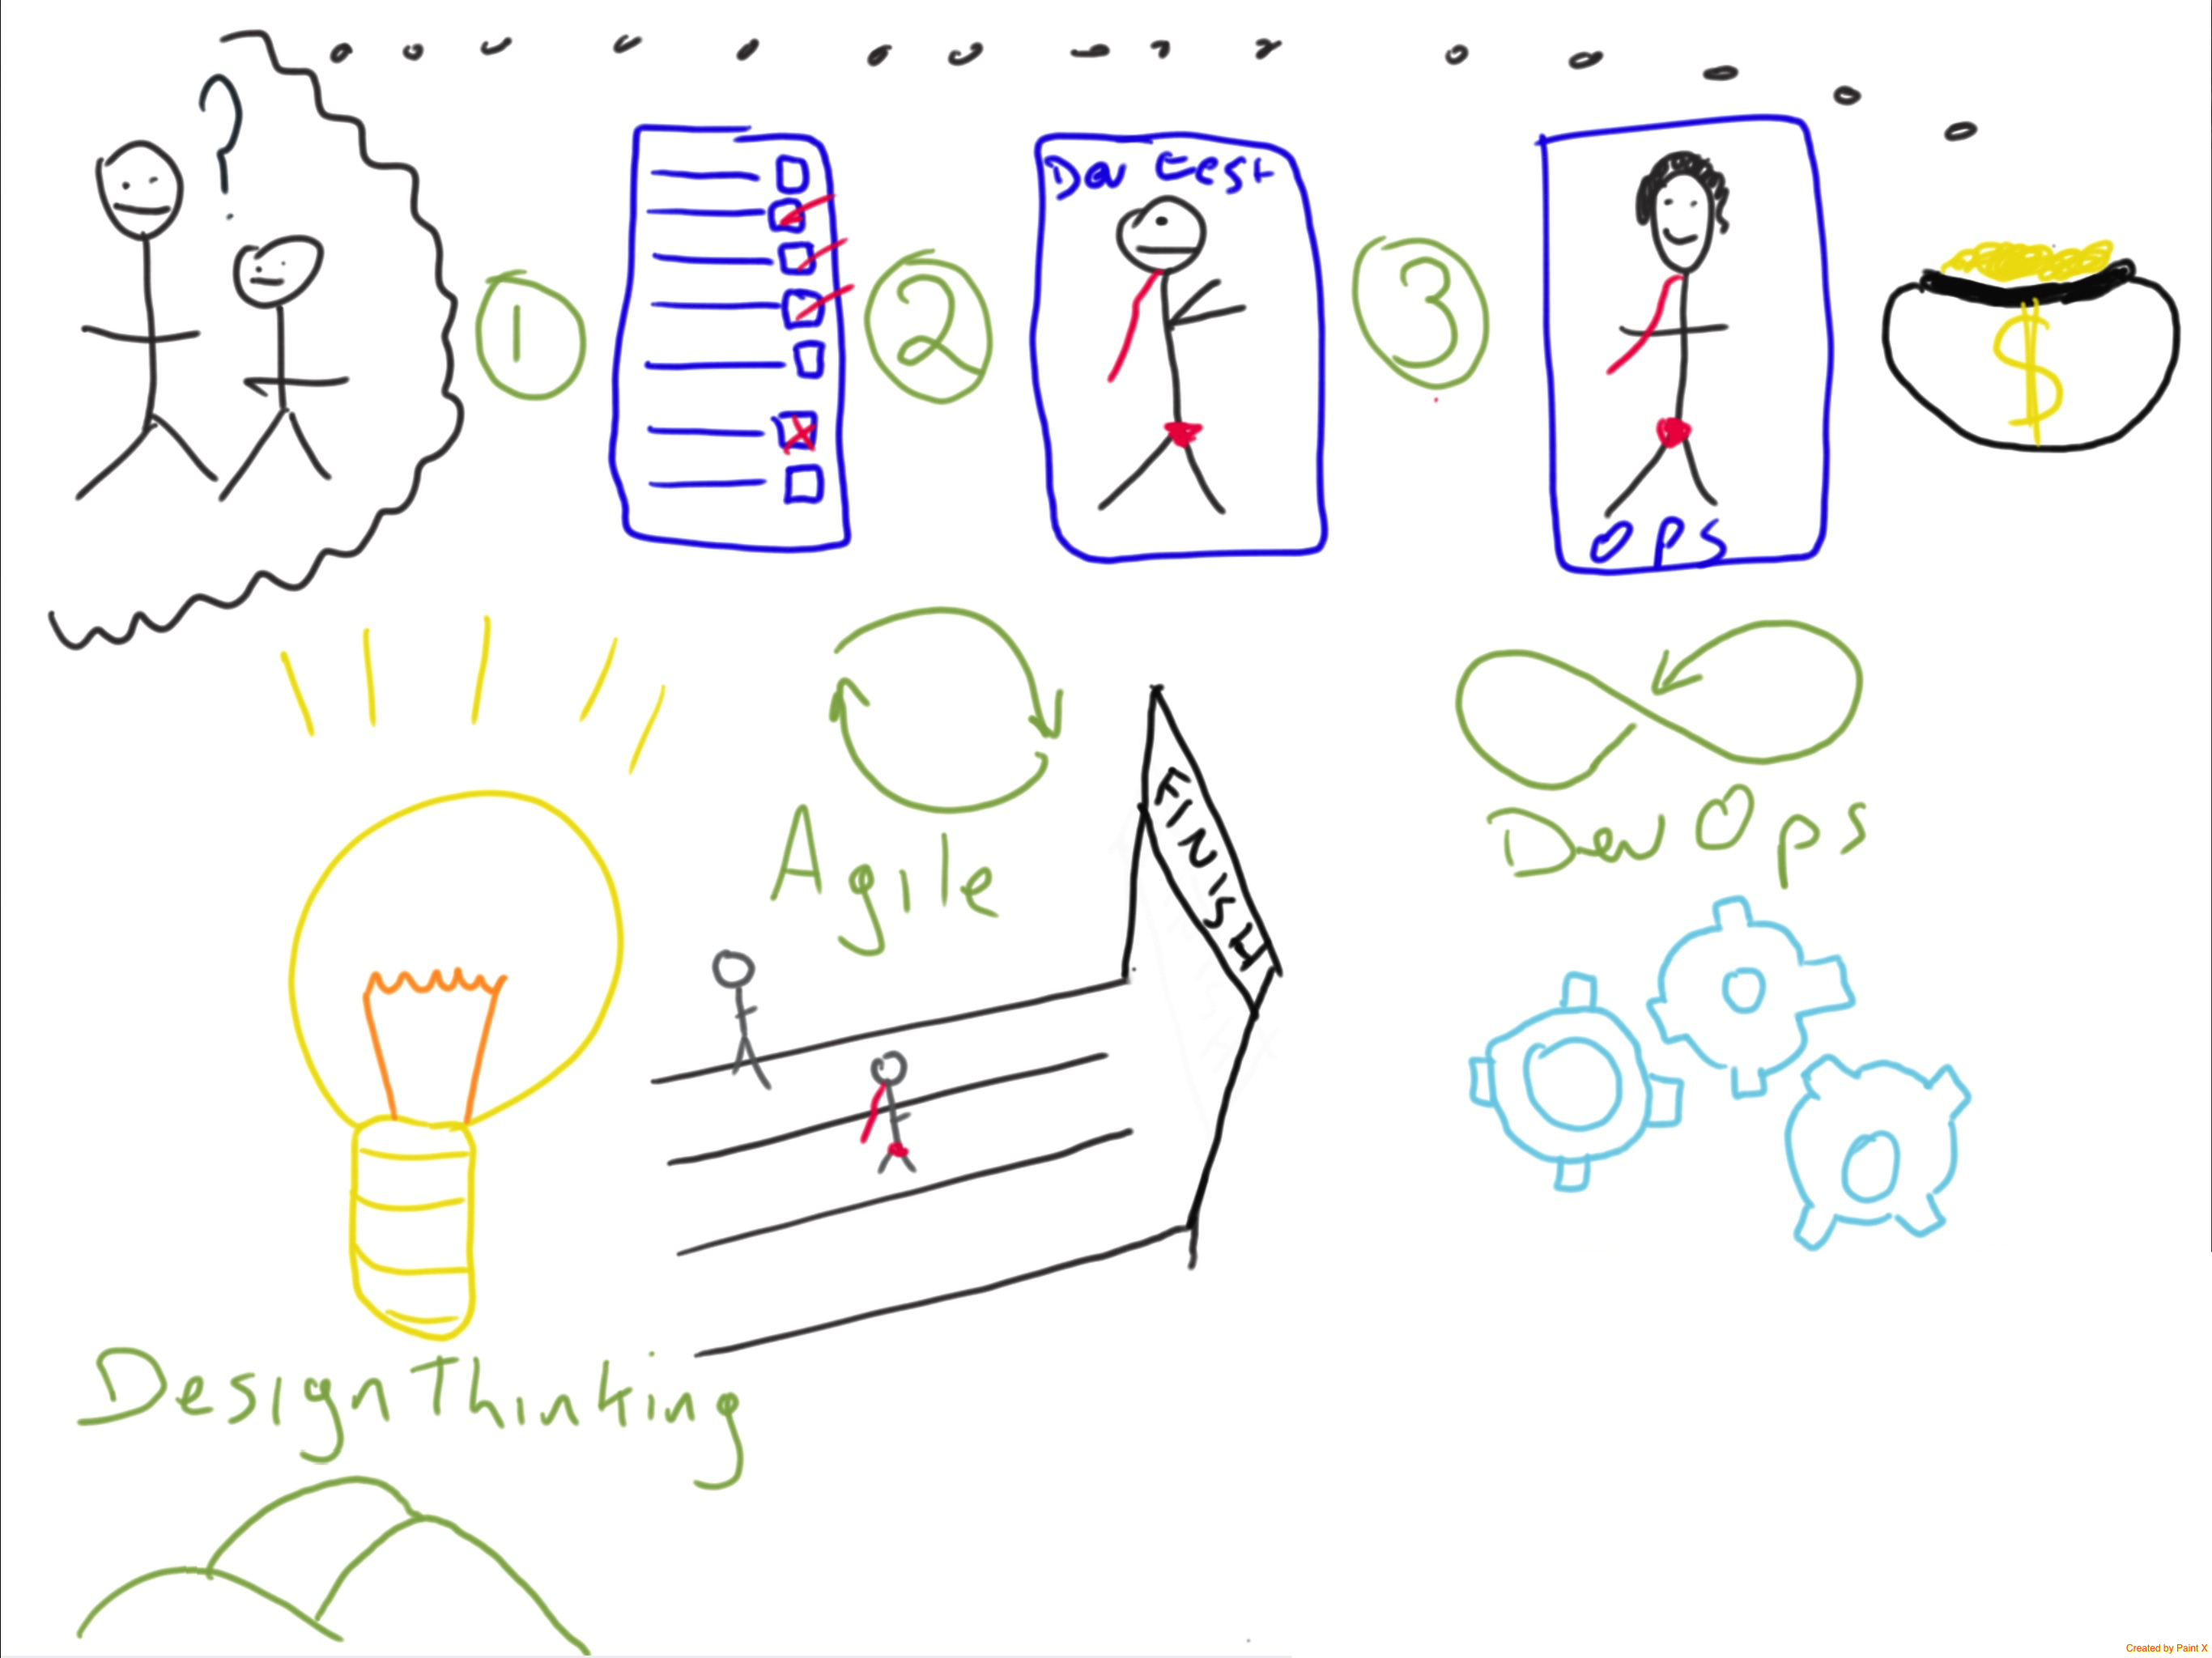 ?
1
2
Dev test
3
Ops
$
Agile
FINISH
DevOps
Design Thinking
Created by Paint X